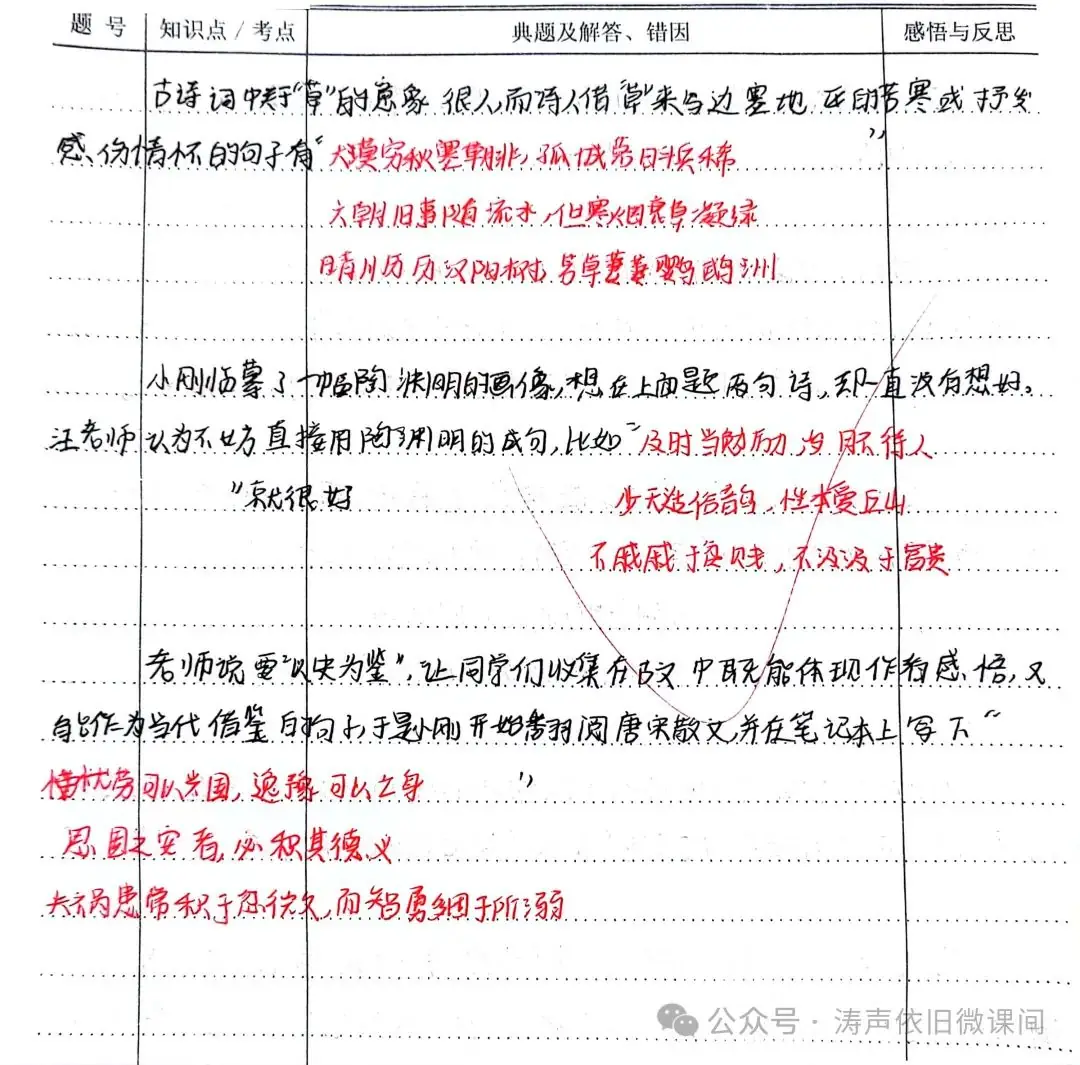 题 号 知识点 / 考点 典题及解答、错因 感悟与反思
古诗词中关于“草”的意象很人,而诗人借“草”来写边塞地区的苦寒或抒发
感伤情怀的句子有“大漠穷秋塞草腓,孤城落日斗兵稀”
六朝旧事随流水,但寒烟衰草凝绿
晴川历历汉阳树,芳草萋萋鹦鹉洲
小刚临摹了一幅陶渊明的画像,想在上面题两句诗,却一直没有想好。
汪老师认为不妨直接用陶渊明的成句,比如“及时当勉励,岁月不待人
”就很好 少无适俗韵,性本爱丘山
不戚戚于贫贱,不汲汲于富贵
老师说要“以史为鉴”,让同学们收集在古文中既能体现作者感悟,又
能作为当代借鉴的句子,于是小刚开始翻阅唐宋散文,并在笔记本上写下“
忧劳可以兴国,逸豫可以亡身 ”
思国之安者,必积其德义
夫祸患常积于忽微,而智勇多困于所溺
公众号·涛声依旧微课间